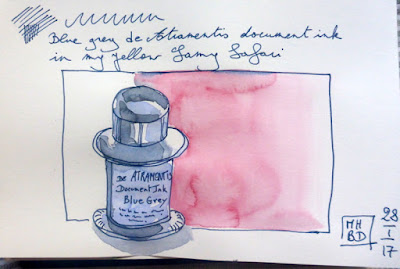 Blue grey de Atramentis document ink
in my yellow Lamy Safari
De ATRAMENTIS
Document Ink
Blue Grey
MH
BD
28
1
17